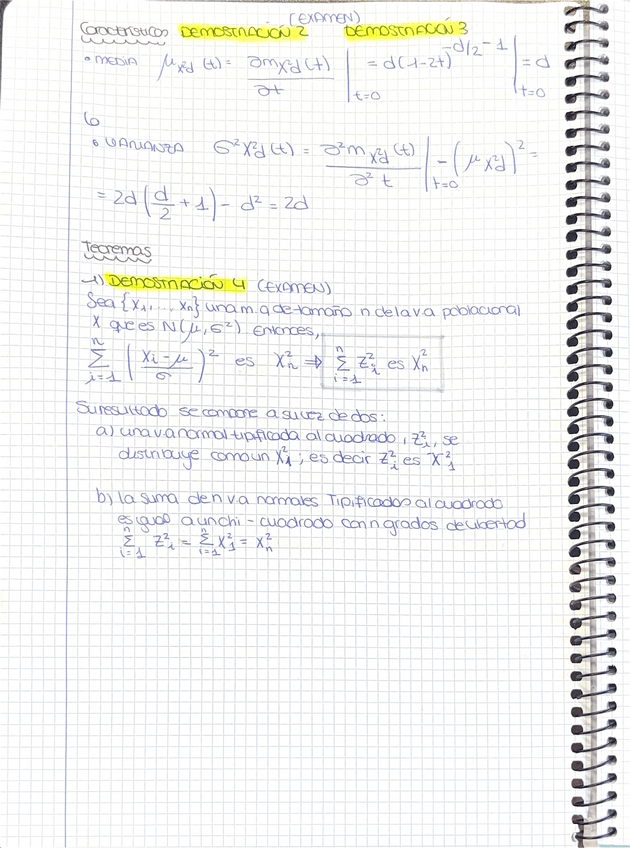 (EXAMEN)
Características DEMOSTRACIÓN 2 DEMOSTRACIÓN 3
• MEDIA μ_{X²d}(t) = ∂m_{X²d}(t) / ∂t |_{t=0} = d(1-2t)^{-d/2-1} |_{t=0} = d
• VARIANZA σ²X²d(t) = ∂²m_{X²d}(t) / ∂²t |_{t=0} - (μ_{X²d})² =
= 2d (d/2 + 1) - d² = 2d
Teoremas
1) DEMOSTRACIÓN 4 (EXAMEN)
Sea {X₁, ... Xn} una m.a de tamaño n de la v.a poblacional
X que es N(μ, σ²) Entonces,
Σ_{i=1}^{n} (Xi - μ / σ)² es X²n ⇒ Σ_{i=1}^{n} Z²i es X²n
Su resultado se compone a su vez de dos:
a) una va normal tipificada al cuadrado, Z²i, se
distribuye como un X²1; es decir Z²i es X²1
b) la suma de n v a normales Tipificadas al cuadrado
es igual a un chi - cuadrado con n grados de libertad
Σ_{i=1}^{n} Z²i = Σ_{i=1}^{n} X²1 = X²n